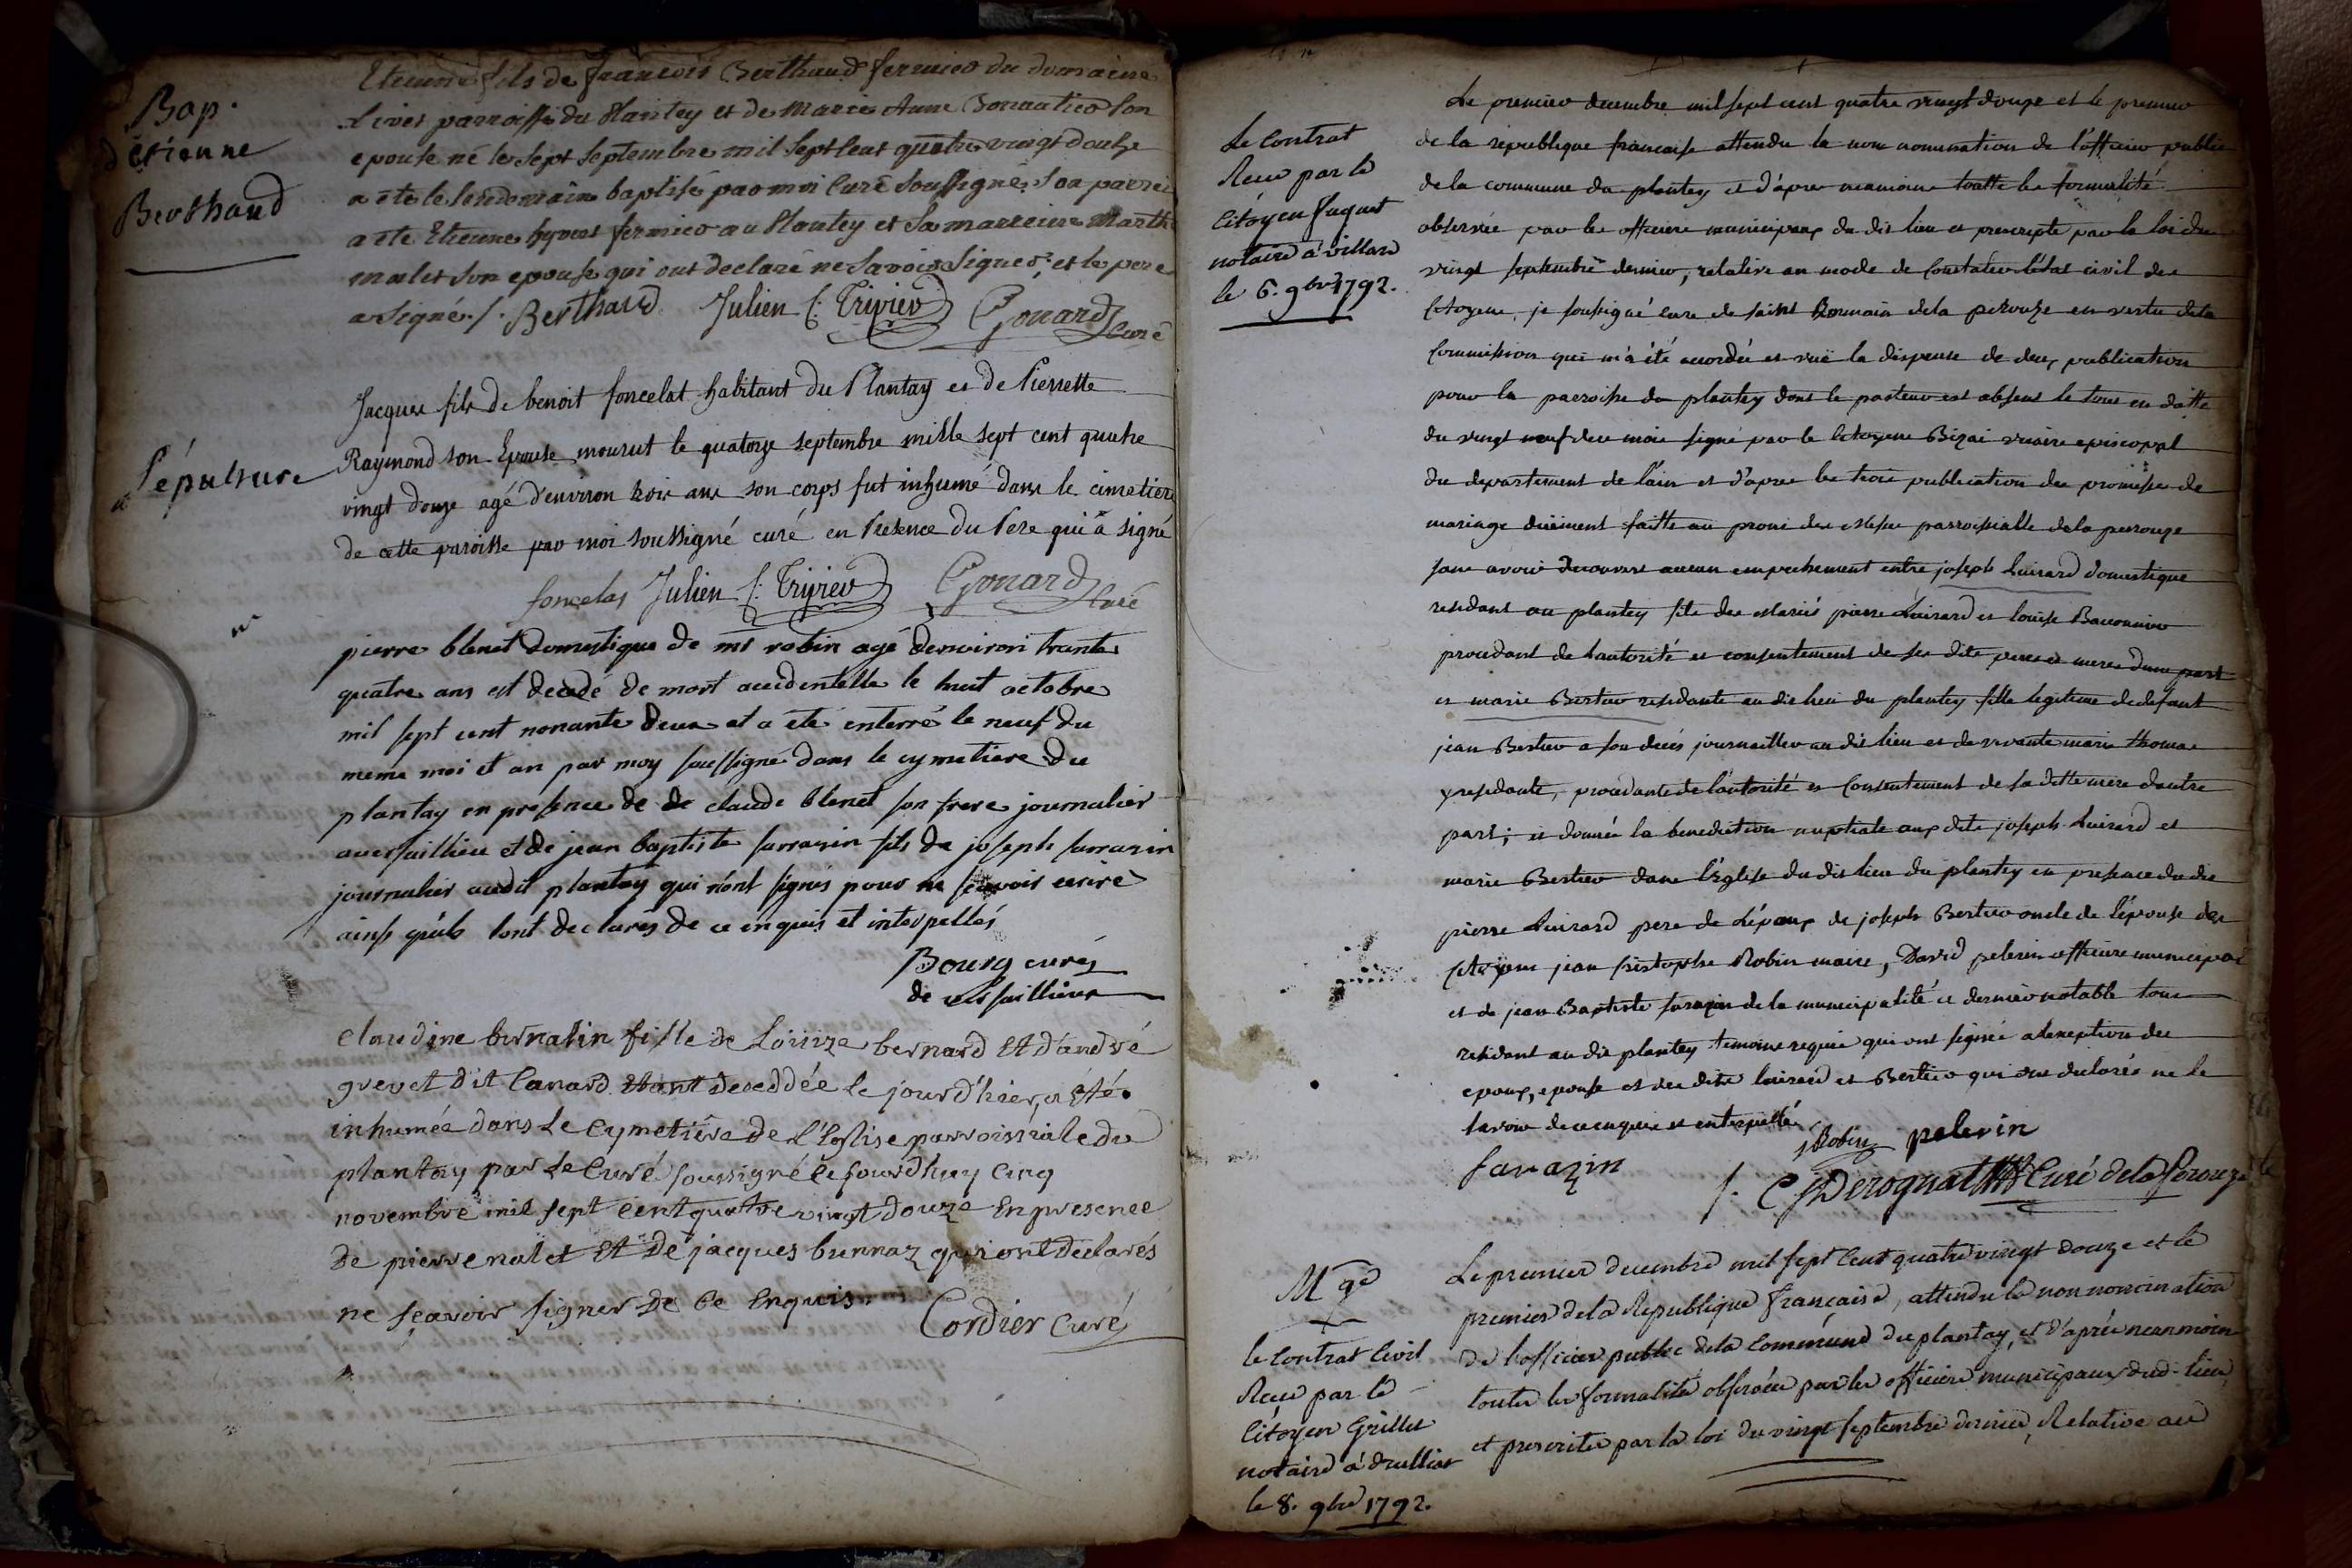 Bap.
d'étienne
Berthaud
Etienne fils de francois Berthaud fermier du domaine
parroisse du Plantey et de Marie Anne son
epouse né le sept septembre mil sept cent quatre vingt douze
a ete le lendemain baptisé par moi Curé soussigné, son parrein
a ete Etienne hyvert fermier au Plantey et sa marreine Marthe
malet son epouse qui ont declaré ne savoir signer, et le pere
a signé ./. Berthaud Julien C: Trivier Gonard Curé
Sépulture
Jacques fils de benoit foncelat habitant du Plantay et de Pierrette
Raymond son Epouse mourut le quatorze septembre mille sept cent quatre
vingt douze agé d'environ trois ans son corps fut inhumé dans le cimetiere
de cette paroisse par moi soussigné curé en Présence du Pere qui a signé
foncelas Julien C: Trivier Gonard Curé
pierre blenet domestique de mr robin agé denviron trante
quatre ans est decedé de mort accidentelle le huit octobre
mil sept cent nonante deux et a eté enterré le neuf du
meme moi et an par moy soussigné dans le cymetiere du
plantay en presence de de claude blenet son frere journalier
a versaillieu et de jean baptiste sarrasin fils de joseph sarrasin
journalier audit plantay qui n'ont signés pour ne sçavoir ecrire
ainsi qu'ils l'ont declarés de ce enquis et interpellés
Bourg curé
de versaillieux
Claudine bernalin fille de Loüize bernard Et d'andré
grevet dit Canard Etant deceddée le jourd'hier, a Eté
inhumée dans Le Cymetière de L'Eglise parroissiale du
plantay par Le Curé soussigné ce jourdhuy cinq
novembre mil sept Cent quatre vingt douze En presence
de pierre nalet Et de jacques bunnaz qui ont declarés
ne sçavoir signer de Ce Enquis. Cordier Curé
Le Contrat
Recu par le
Citoyen fuguet
notaire à villard
le 6. 9bre 1792.
Le premier decembre mil sept cent quatre vingt douze et le premier
de la republique francaise attendu la non nomination de l'officier public
de la commune du plantey et d'apres neanmoins toutte les formalité
observée par les officiers municipaux du dit lieu et prescripte par la loi du
vingt septembre dernier, relative au mode de Constater l'état civil des
Citoyens, je soussigné curé de saint Romain de la perouze en vertu de la
Commission qui m'a été accordée et vuë la dispense de deux publication
pour la parroisse du plantey dont le pasteur est absent le tout en datte
du vingt neuf du mois signé par le Citoyen Bizai vicaire episcopal
du departement de l'ain et d'apres les trois publication des promesse de
mariage duëment faitte au prone des Messe parroissialle de la perouze
sans avoir decouvert aucun empechement entre joseph Luirard domestique
residant au plantey fils des Mariés pierre Luirard et louise
procedant de lautorité et consentement de ses dits pere et mere dune part
et marie Bertier residante au dit lieu du plantey fille legitime de defunt
jean Bertier a son decés journaillier au dit lieu et de vivante marie thomas
y residante, procedante de l'autorité et Consentement de sa ditte mere d'autre
part; et donnée la benediction nuptiale aux dits joseph Luirard et
marie Bertier dans l'Eglise du dit lieu du plantey en presence du dit
pierre Luirard pere de L'époux de joseph Bertier oncle de L'épouse des
Citoyens jean Robin maire, David pelerin officier municipal
et de jean Baptiste sarazin de la municipalité ce dernier notable tous
residant au dit plantey temoins requis qui ont signés a l'exeption des
epoux, epouse et des dits luirard et Bertier qui ont declarés ne le
savoir de ce enquis et interpellé
JRobin pelerin
sarazin Derognat Curé de la Perouze
Mge
le Contrat Civil
Recu par le
Citoyen Grillet
notaire à
le 8. 9bre 1792.
Le premier decembre mil sept Cent quatre vingt douze et le
premier de la Republique française, attendu la non nomination
de l'officier public de la Commune du plantay, et d'après neanmoins
toutes les formalités observées par les officiers municipaux dud. lieu,
et prescrites par la loi du vingt septembre dernier, Relative au